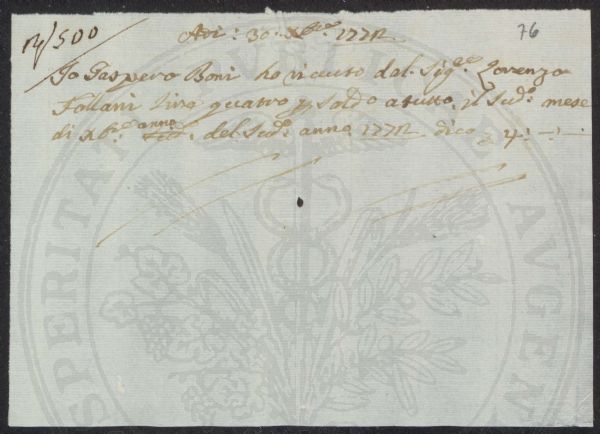 N/500
Adi: 30. Xbre. 1772
76
Io Gaspero Boni ho riceuto dal Sigre. Lorenzo
Follani lire quatro p. soldo a tutto il Sudo. mese
di Xbre. anno del Sudo. anno 1772 dico £ 4:-:-
PROSPERITATI PUBLICAE AUGENDAE